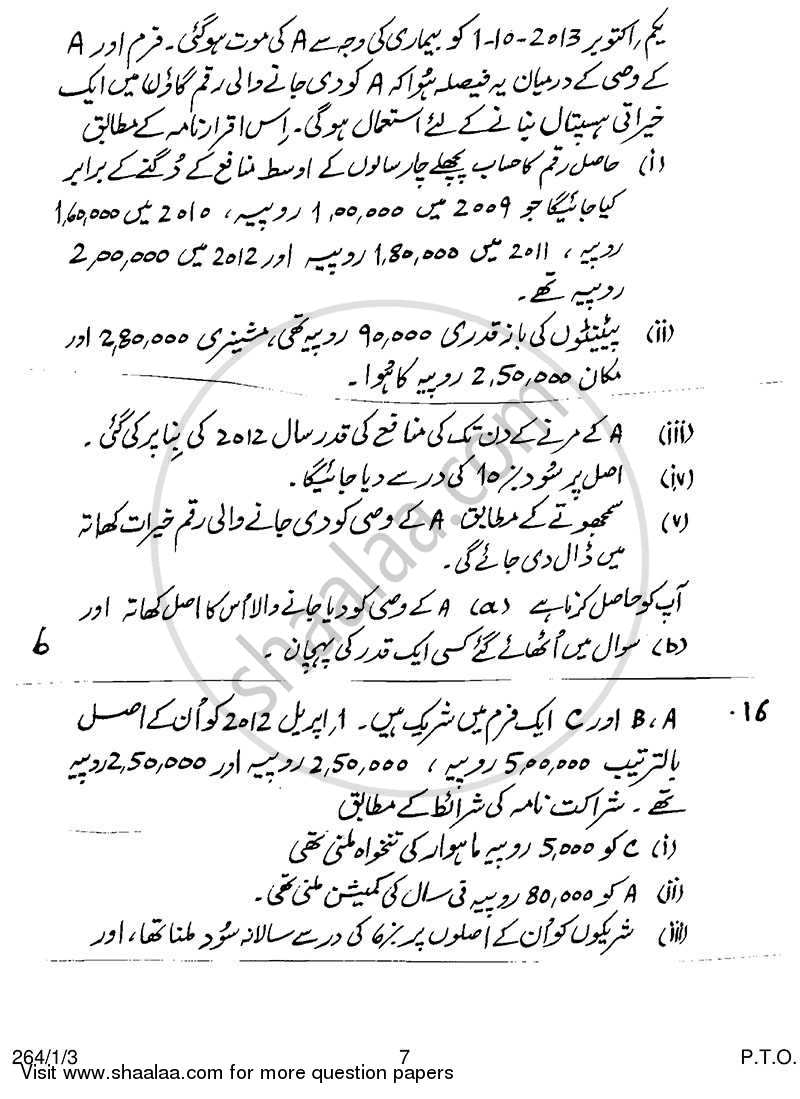 یکم اکتوبر 2013-10-1 کو بیماری کی وجہ سے A کی موت ہوگئی۔ فرم اور A
کے وصی کے درمیان یہ فیصلہ ہوا کہ A کو دی جانے والی رقم گاؤں میں ایک
خیراتی ہسپتال بنانے کے لئے استعمال ہوگی۔ اِس اقرار نامہ کے مطابق
(i) حاصل رقم کا حساب پچھلے چار سالوں کے اوسط منافع کے دُگنے کے برابر
کیا جائیگا جو 2009 میں 1,00,000 روپیہ، 2010 میں 1,60,000
روپیہ، 2011 میں 1,80,000 روپیہ اور 2012 میں 2,00,000
روپیہ تھے۔
(ii) پیٹینٹوں کی باز قدری 90,000 روپیہ تھی، مشینری 2,80,000 اور
مکان 2,50,000 روپیہ کا ہوا۔
(iii) A کے مرنے کے دن تک کی منافع کی قدر سال 2012 کی بِنا پر کی گئی۔
(iv) اصل پر سود 10% کی در سے دیا جائیگا۔
(v) سمجھوتے کے مطابق A کے وصی کو دی جانے والی رقم خیرات کھاتہ
میں ڈال دی جائے گی۔
آپ کو حاصل کرنا ہے (a) A کے وصی کو دیا جانے والا اُس کا اصل کھاتہ اور
(b) سوال میں اُٹھائے گئے کسی ایک قدر کی پہچان۔ 6
16. A، B اور C ایک فرم میں شریک ہیں۔ 1 اپریل 2012 کو اُن کے اصل
بالترتیب 5,00,000 روپیہ، 2,50,000 روپیہ اور 2,50,000 روپیہ
تھے۔ شراکت نامہ کی شرائط کے مطابق
(i) C کو 5,000 روپیہ ماہوار کی تنخواہ ملنی تھی
(ii) A کو 80,000 روپیہ فی سال کی کمیشن ملنی تھی۔
(iii) شریکوں کو اُن کے اصلوں پر 6% کی در سے سالانہ سُود ملنا تھا، اور
264/1/3 7 P.T.O.
Visit www.shaalaa.com for more question papers
shaalaa.com